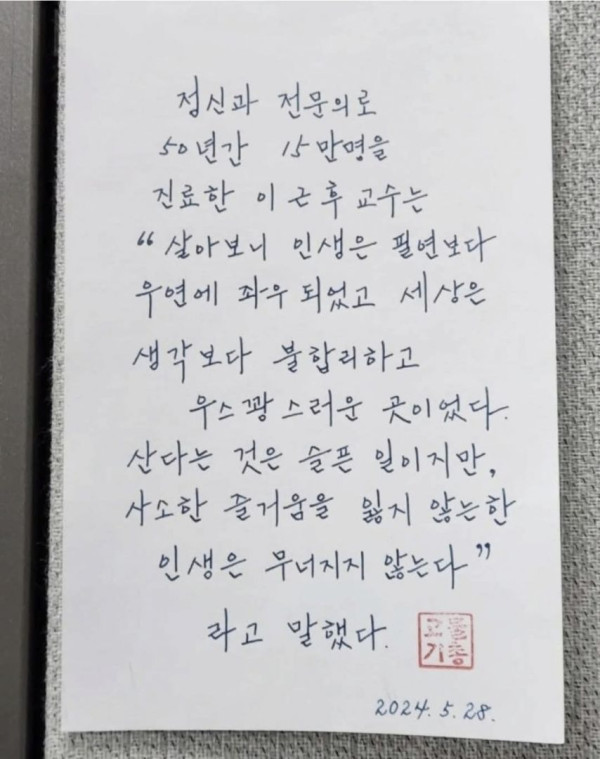 정신과 전문의로
50년간 15만명을
진료한 이근후 교수는
“살아보니 인생은 필연보다
우연에 좌우되었고 세상은
생각보다 불합리하고
우스꽝스러운 곳이었다.
산다는 것은 슬픈 일이지만,
사소한 즐거움을 잃지 않는한
인생은 무너지지 않는다”
라고 말했다.
2024. 5. 28.